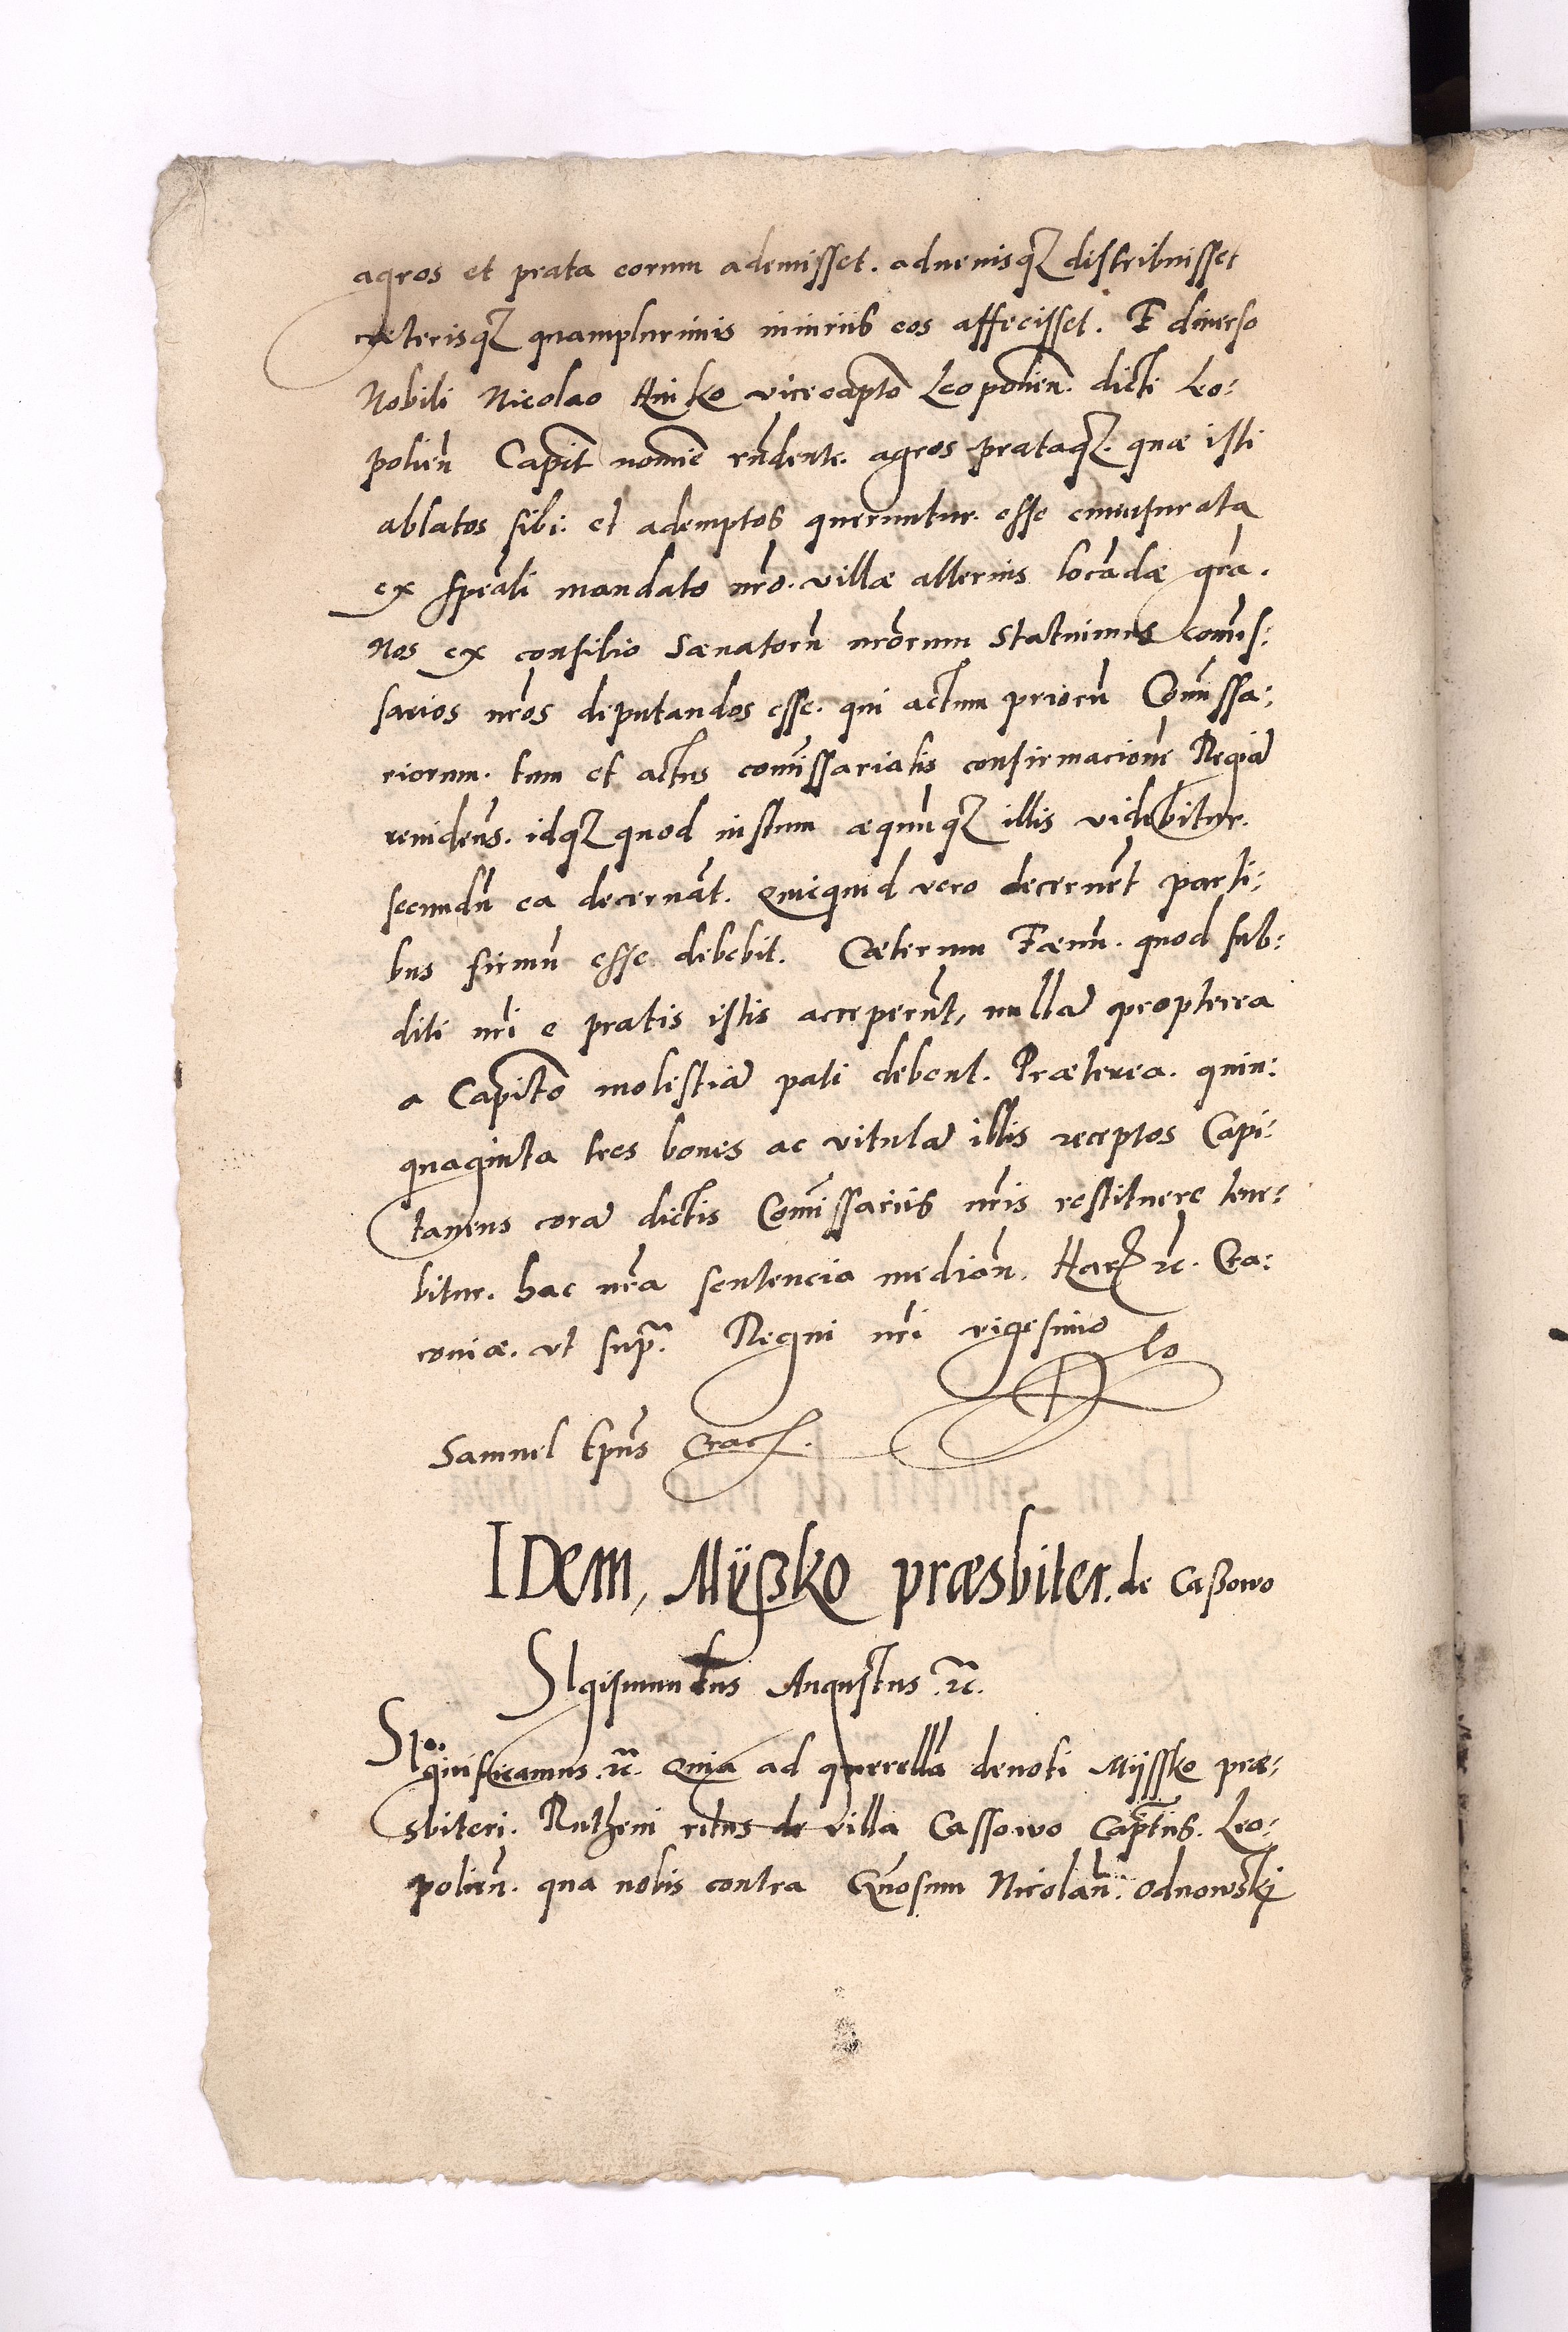 agros et prata eorum ademisset. aduenisqꝫ distribuisset
cæterisqꝫ quamplurimis iniuriis eos affecisset. E diuerso
Nobili Nicolao vicecapto Leopolien̄. dicti Leo:
polien̄ Capit nomīe rn̄dente. agros prataqꝫ. quæ isti
ablatos sibi. et ademptos queruntur. esse emensurata
ex sp̄eali mandato nr̄o. villæ alterius locādæ gr̄a.
Nos ex consilio Sænatorū nr̄orum statuimus com̄is:
sarios nr̄os deputandos esse. qui actum priorū Com̄issa:
riorum. tum et actus com̄issarialis confirmacionē Regiā
reuideāt. idqꝫ quod iustum æquūqꝫ illis videbitur.
secundū ea decernāt. Quicquid vero decernēt parti:
bus firmū esse debebit. Cæterum Fænū. quod sub:
diti nr̄i e pratis istis acceperūt, nullā propterea
a Capito molestiā pati debent. Præterea. quin:
quaginta tres boues ac vitulā illis receptos Capi:
taneus corā dictis Com̄issariis nr̄is restituere tene:
bitur. hac nr̄a sentencia median̄. Harꝫ ꝛc. Cra:
couiæ. vt supᵃ. Regni nr̄i vigesimo
lo
Samuel Ep̄us Crac.
IDem, Mÿßko præsbiter. de Caßowo
SIgismundus Augustus ꝛc.
SIgnificamus ꝛc. Quia ad querellā deuoti Mÿssko præ:
sbiteri. Rutheni ritus de villa Cassowo Cap̄tus. Leo:
polien̄. qua nobis contra Gn̄osum Nicolaū. Odnowskj